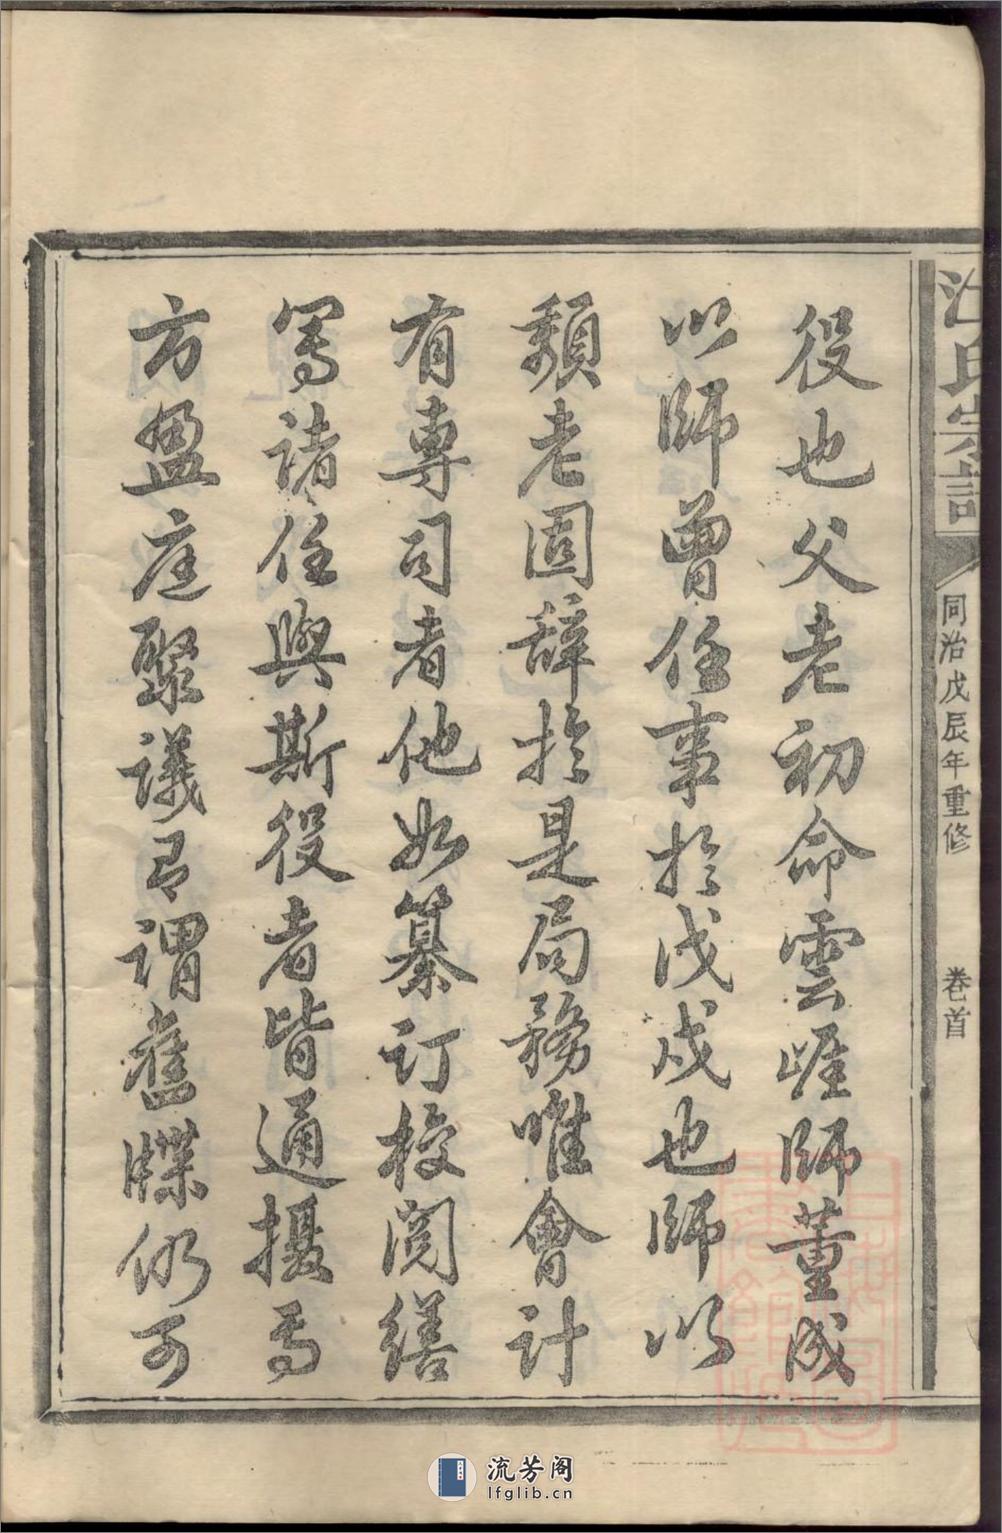 氏宗譜
同治戊辰年重修
卷首
役也父老初命雲崕師董成
以師曾任事於戊戌也師以
頹老固辭於是局務唯會計
有專司者他如纂訂校閱繕
寫諸任與斯役者皆通攝焉
方盈庭聚議有謂舊牒仍可
流芳阁
lfglib.cn